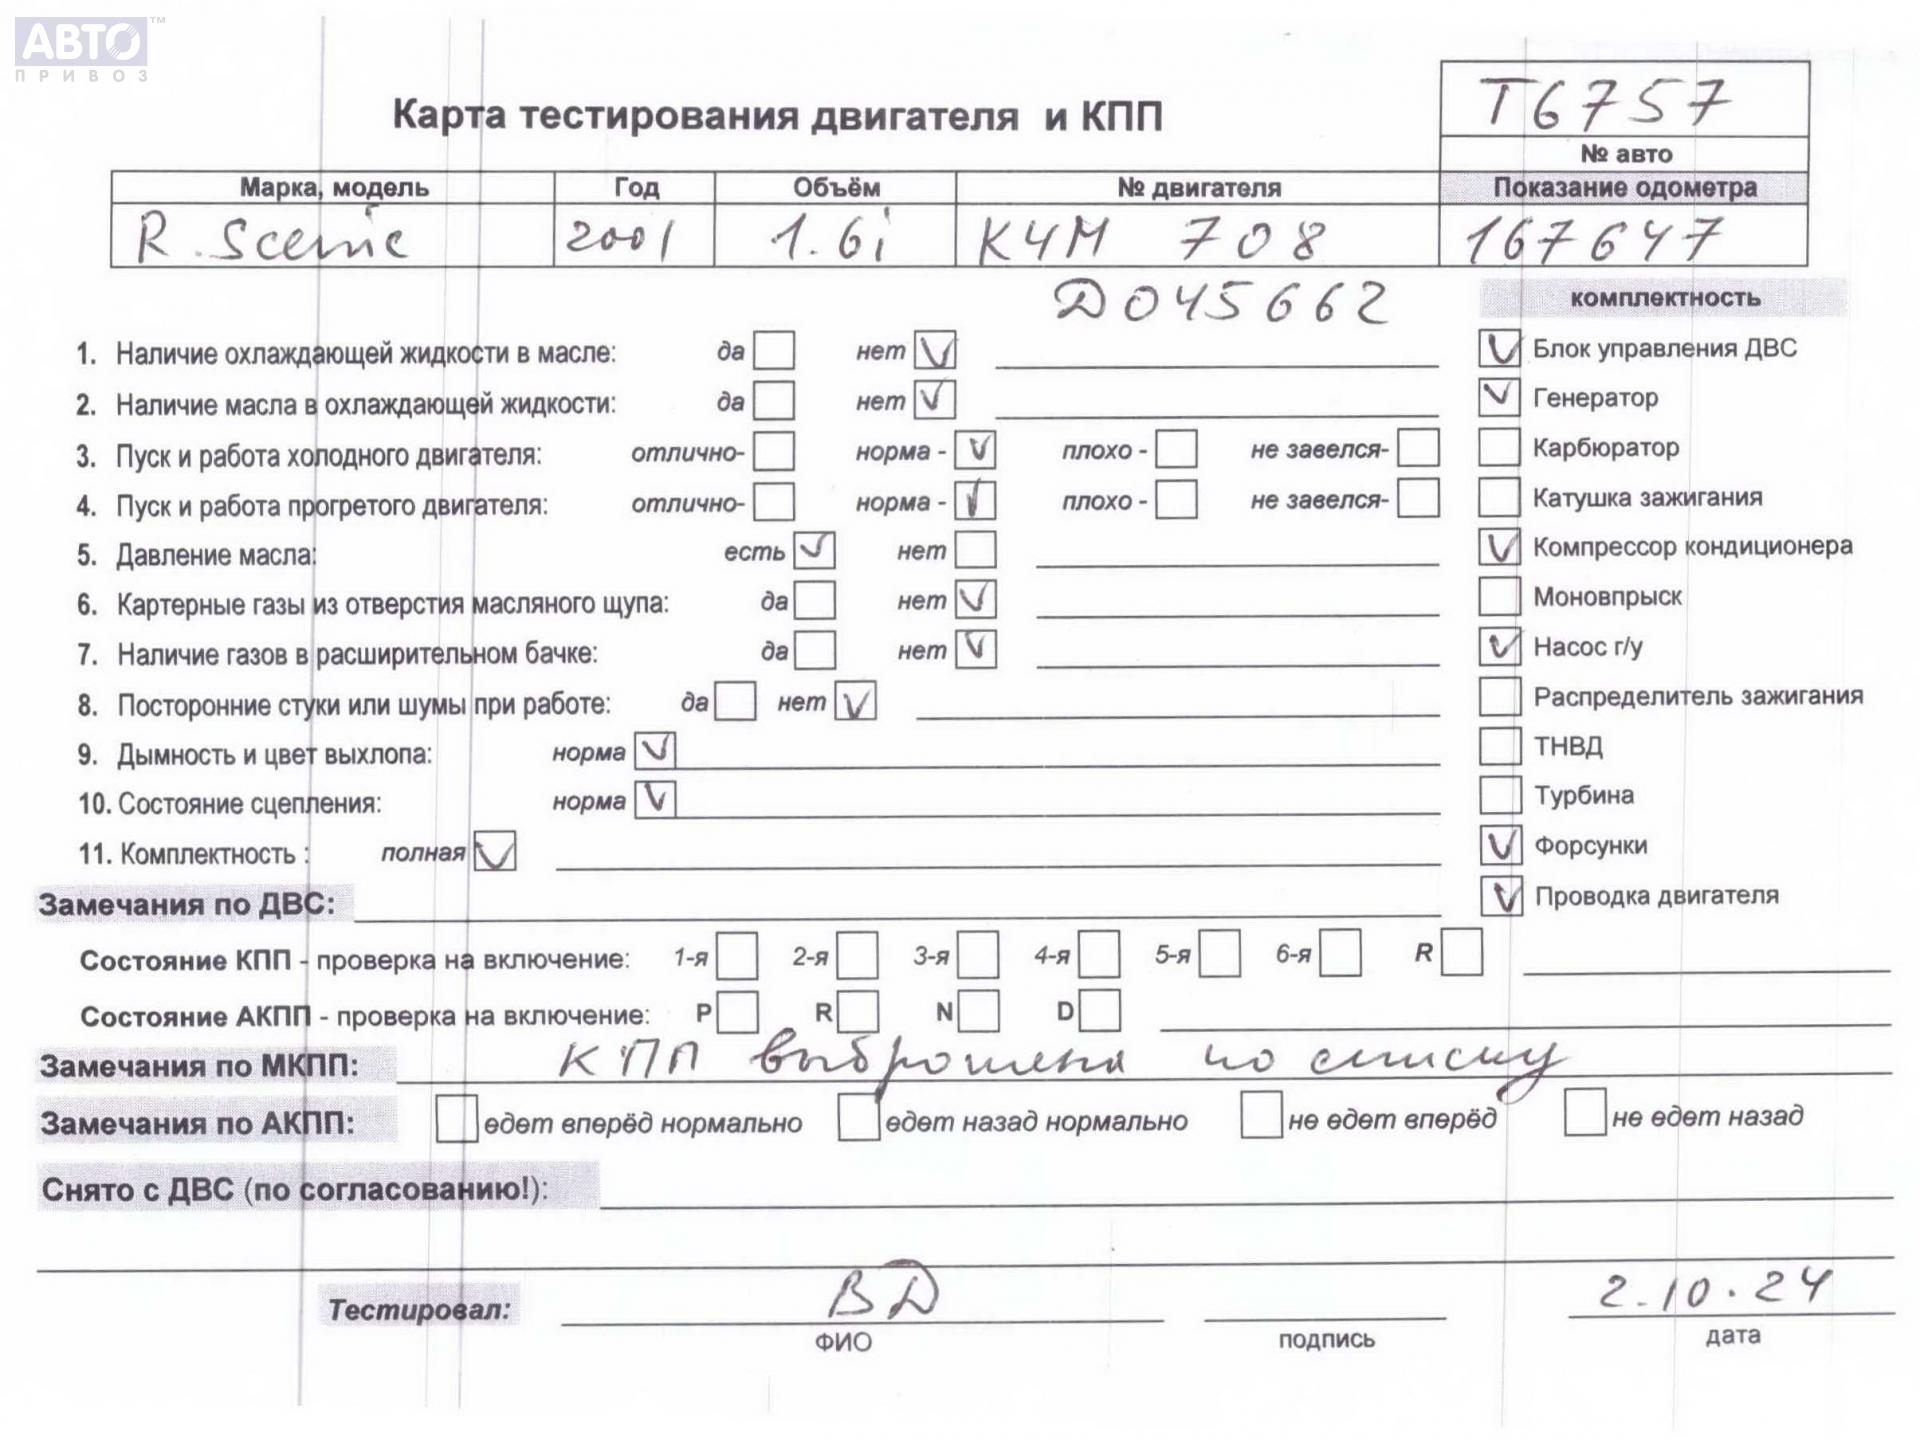 АВТО™
ПРИВОЗ
Карта тестирования двигателя и КПП
Т6757
№ авто
Марка, модель Год Объём № двигателя Показание одометра
R. Scenic 2001 1.6i K4M 708 167647
D045662
комплектность
1. Наличие охлаждающей жидкости в масле: да нет ✓
2. Наличие масла в охлаждающей жидкости: да нет ✓
3. Пуск и работа холодного двигателя: отлично- норма - ✓ плохо - не завелся-
4. Пуск и работа прогретого двигателя: отлично- норма - ✓ плохо - не завелся-
5. Давление масла: есть ✓ нет
6. Картерные газы из отверстия масляного щупа: да нет ✓
7. Наличие газов в расширительном бачке: да нет ✓
8. Посторонние стуки или шумы при работе: да нет ✓
9. Дымность и цвет выхлопа: норма ✓
10. Состояние сцепления: норма ✓
11. Комплектность : полная ✓
✓ Блок управления ДВС
✓ Генератор
Карбюратор
Катушка зажигания
✓ Компрессор кондиционера
Моновпрыск
✓ Насос г/у
Распределитель зажигания
ТНВД
Турбина
✓ Форсунки
✓ Проводка двигателя
Замечания по ДВС:
Состояние КПП - проверка на включение: 1-я 2-я 3-я 4-я 5-я 6-я R
Состояние АКПП - проверка на включение: P R N D
Замечания по МКПП: КПП выброшена по списку
Замечания по АКПП: едет вперёд нормально едет назад нормально не едет вперёд не едет назад
Снято с ДВС (по согласованию!):
Тестировал: ВД 2.10.24
ФИО подпись дата